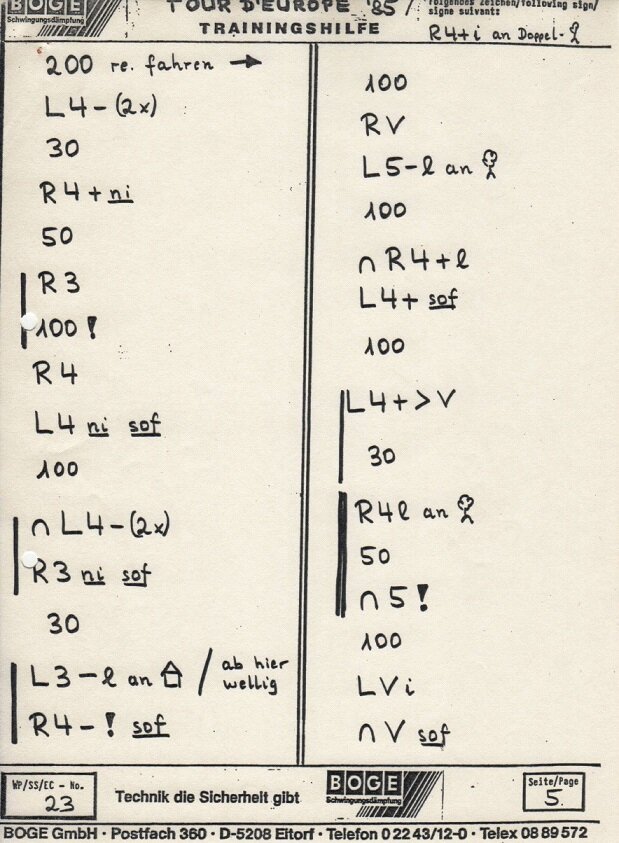 BOGE
Schwingungsdämpfung
TOUR D'EUROPE '85 /
TRAININGSHILFE
folgendes Zeichen/following sign/
signe suivant:
R4+i an Doppel-
200 re. fahren →
L4-(2x)
30
R4+ni
50
R3
100!
R4
L4 ni sof
100
∩ L4-(2x)
R3 ni sof
30
L3-l an / ab hier
wellig
R4-! sof
100
RV
L5-l an
100
∩ R4+l
L4+ sof
100
L4+>V
30
R4l an
50
∩ 5!
100
LVi
∩ V sof
WP/SS/EC - No.
23
Technik die Sicherheit gibt
BOGE
Schwingungsdämpfung
Seite/Page
5.
BOGE GmbH · Postfach 360 · D-5208 Eitorf · Telefon 0 22 43/12-0 · Telex 08 89 572